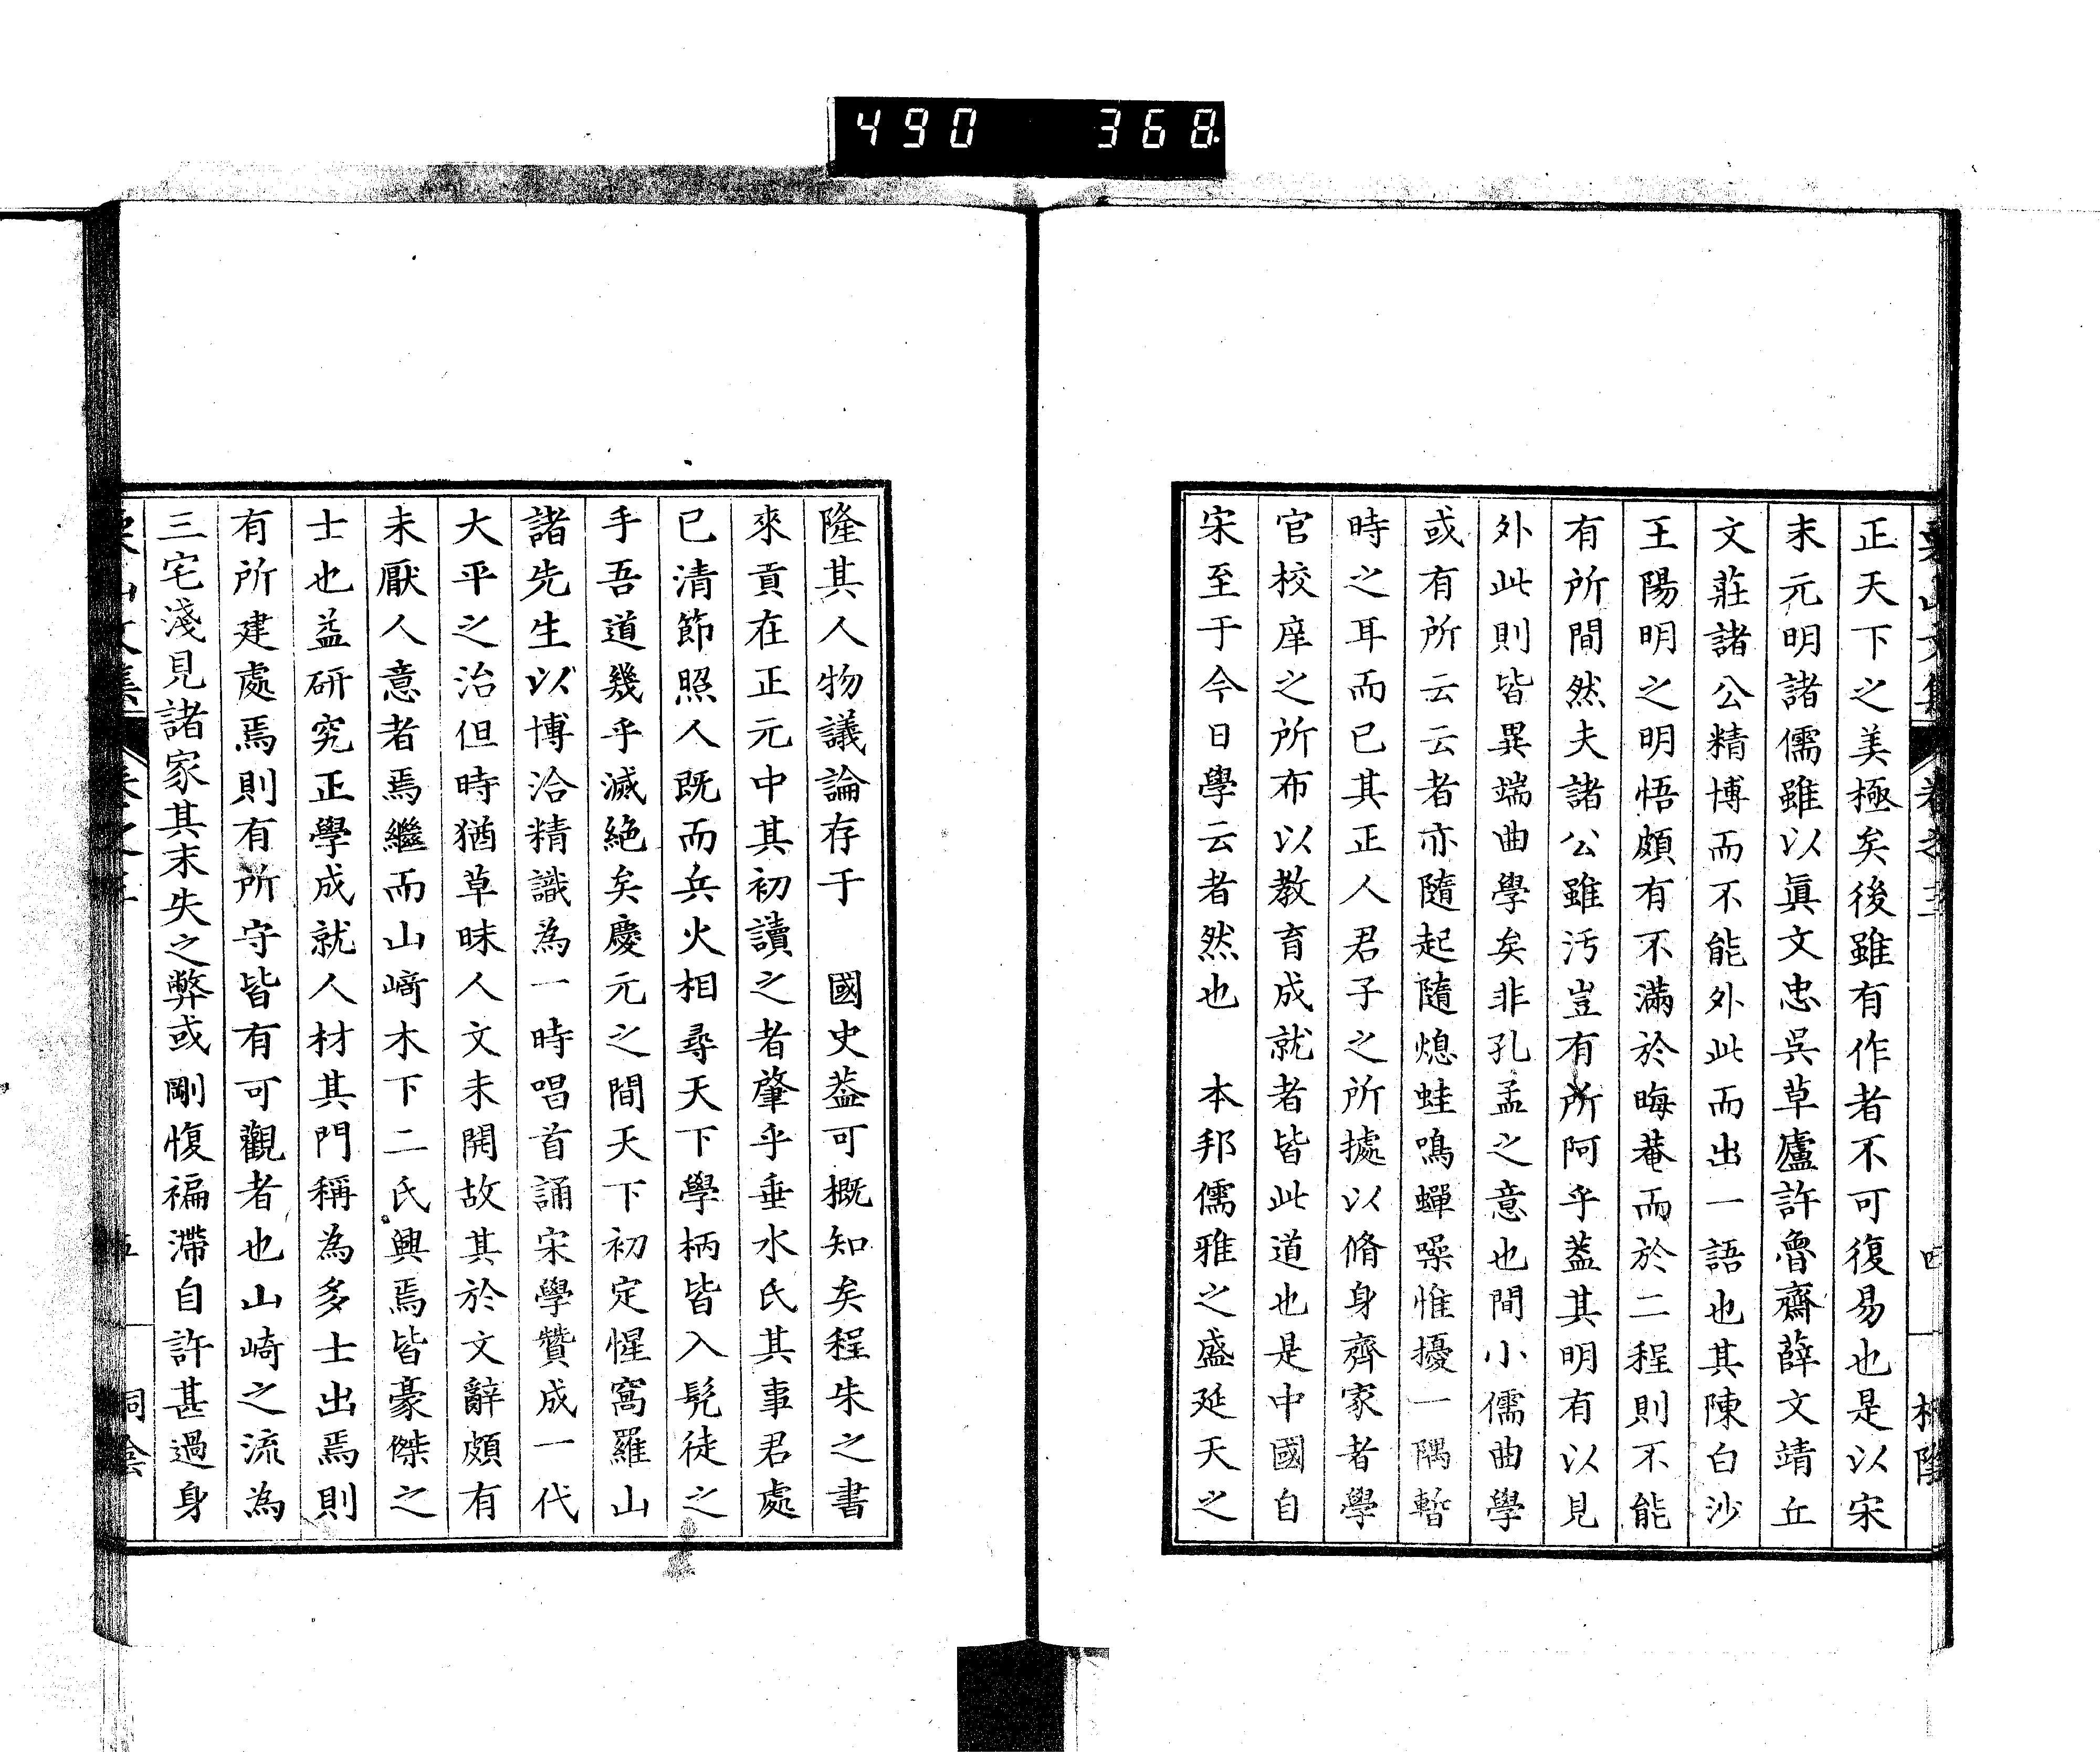 490 368
正天下之美極矣後雖有作者不可復易也是以宋
末元明諸儒雖以眞文忠吳草廬許魯齋薛文靖丘
文莊諸公精博而不能外此而出一語也其陳白沙
王陽明之明悟頗有不滿於晦菴而於二程則不能
有所間然夫諸公雖汚豈有所阿乎蓋其明有以見
外此則皆異端曲學矣非孔孟之意也間小儒曲學
或有所云云者亦隨起隨熄蛙鳴蟬噪惟擾一隅暫
時之耳而已其正人君子之所據以脩身齊家者學
官校庠之所布以教育成就者皆此道也是中國自
宋至于今日學云者然也　本邦儒雅之盛延天之
隆其人物議論存于　國史葢可概知矣程朱之書
來貢在正元中其初讀之者肇乎垂水氏其事君處
已清節照人既而兵火相尋天下學柄皆入髡徒之
手吾道幾乎滅絶矣慶元之間天下初定惺窩羅山
諸先生以博洽精識為一時唱首誦宋學贊成一代
大平之治但時猶草昧人文未開故其於文辭頗有
未厭人意者焉繼而山﨑木下二氏興焉皆豪傑之
士也益研究正學成就人材其門稱為多士出焉則
有所建處焉則有所守皆有可觀者也山崎之流為
三宅淺見諸家其末失之弊或剛愎褊滯自許甚過身